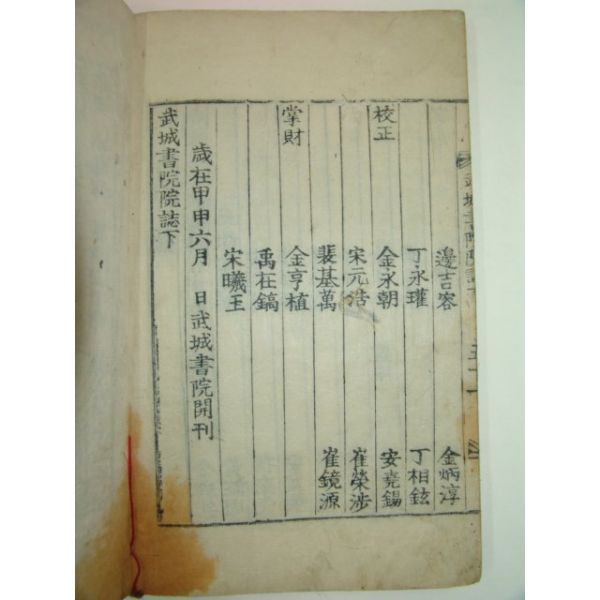 武城書院院誌下
邊吉容 金炳淳
丁永瓘 丁相鉉
校正 金永朝 安堯錫
宋元浩 崔榮涉
裴基萬 崔鏡源
掌財 金亨植
禹在鎬
宋曦玉
歲在甲申六月 日武城書院開刊
武城書院院誌下